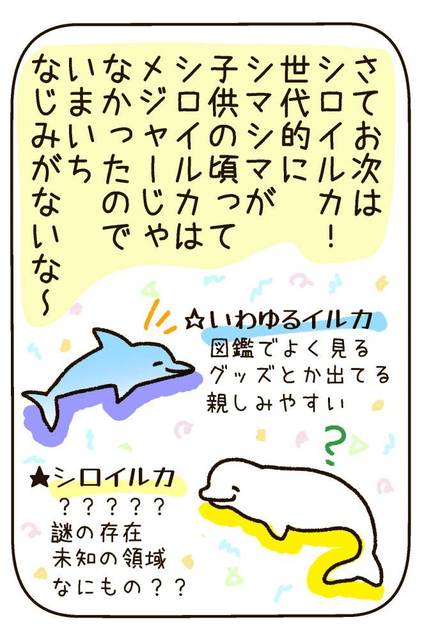 さてお次は
シロイルカ！
世代的に
シマシマが
子供の頃って
シロイルカは
メジャーじゃ
なかったので
いまいち
なじみがないな〜
☆いわゆるイルカ
図鑑でよく見る
グッズとか出てる
親しみやすい
?
★シロイルカ
？？？？？
謎の存在
未知の領域
なにもの？？